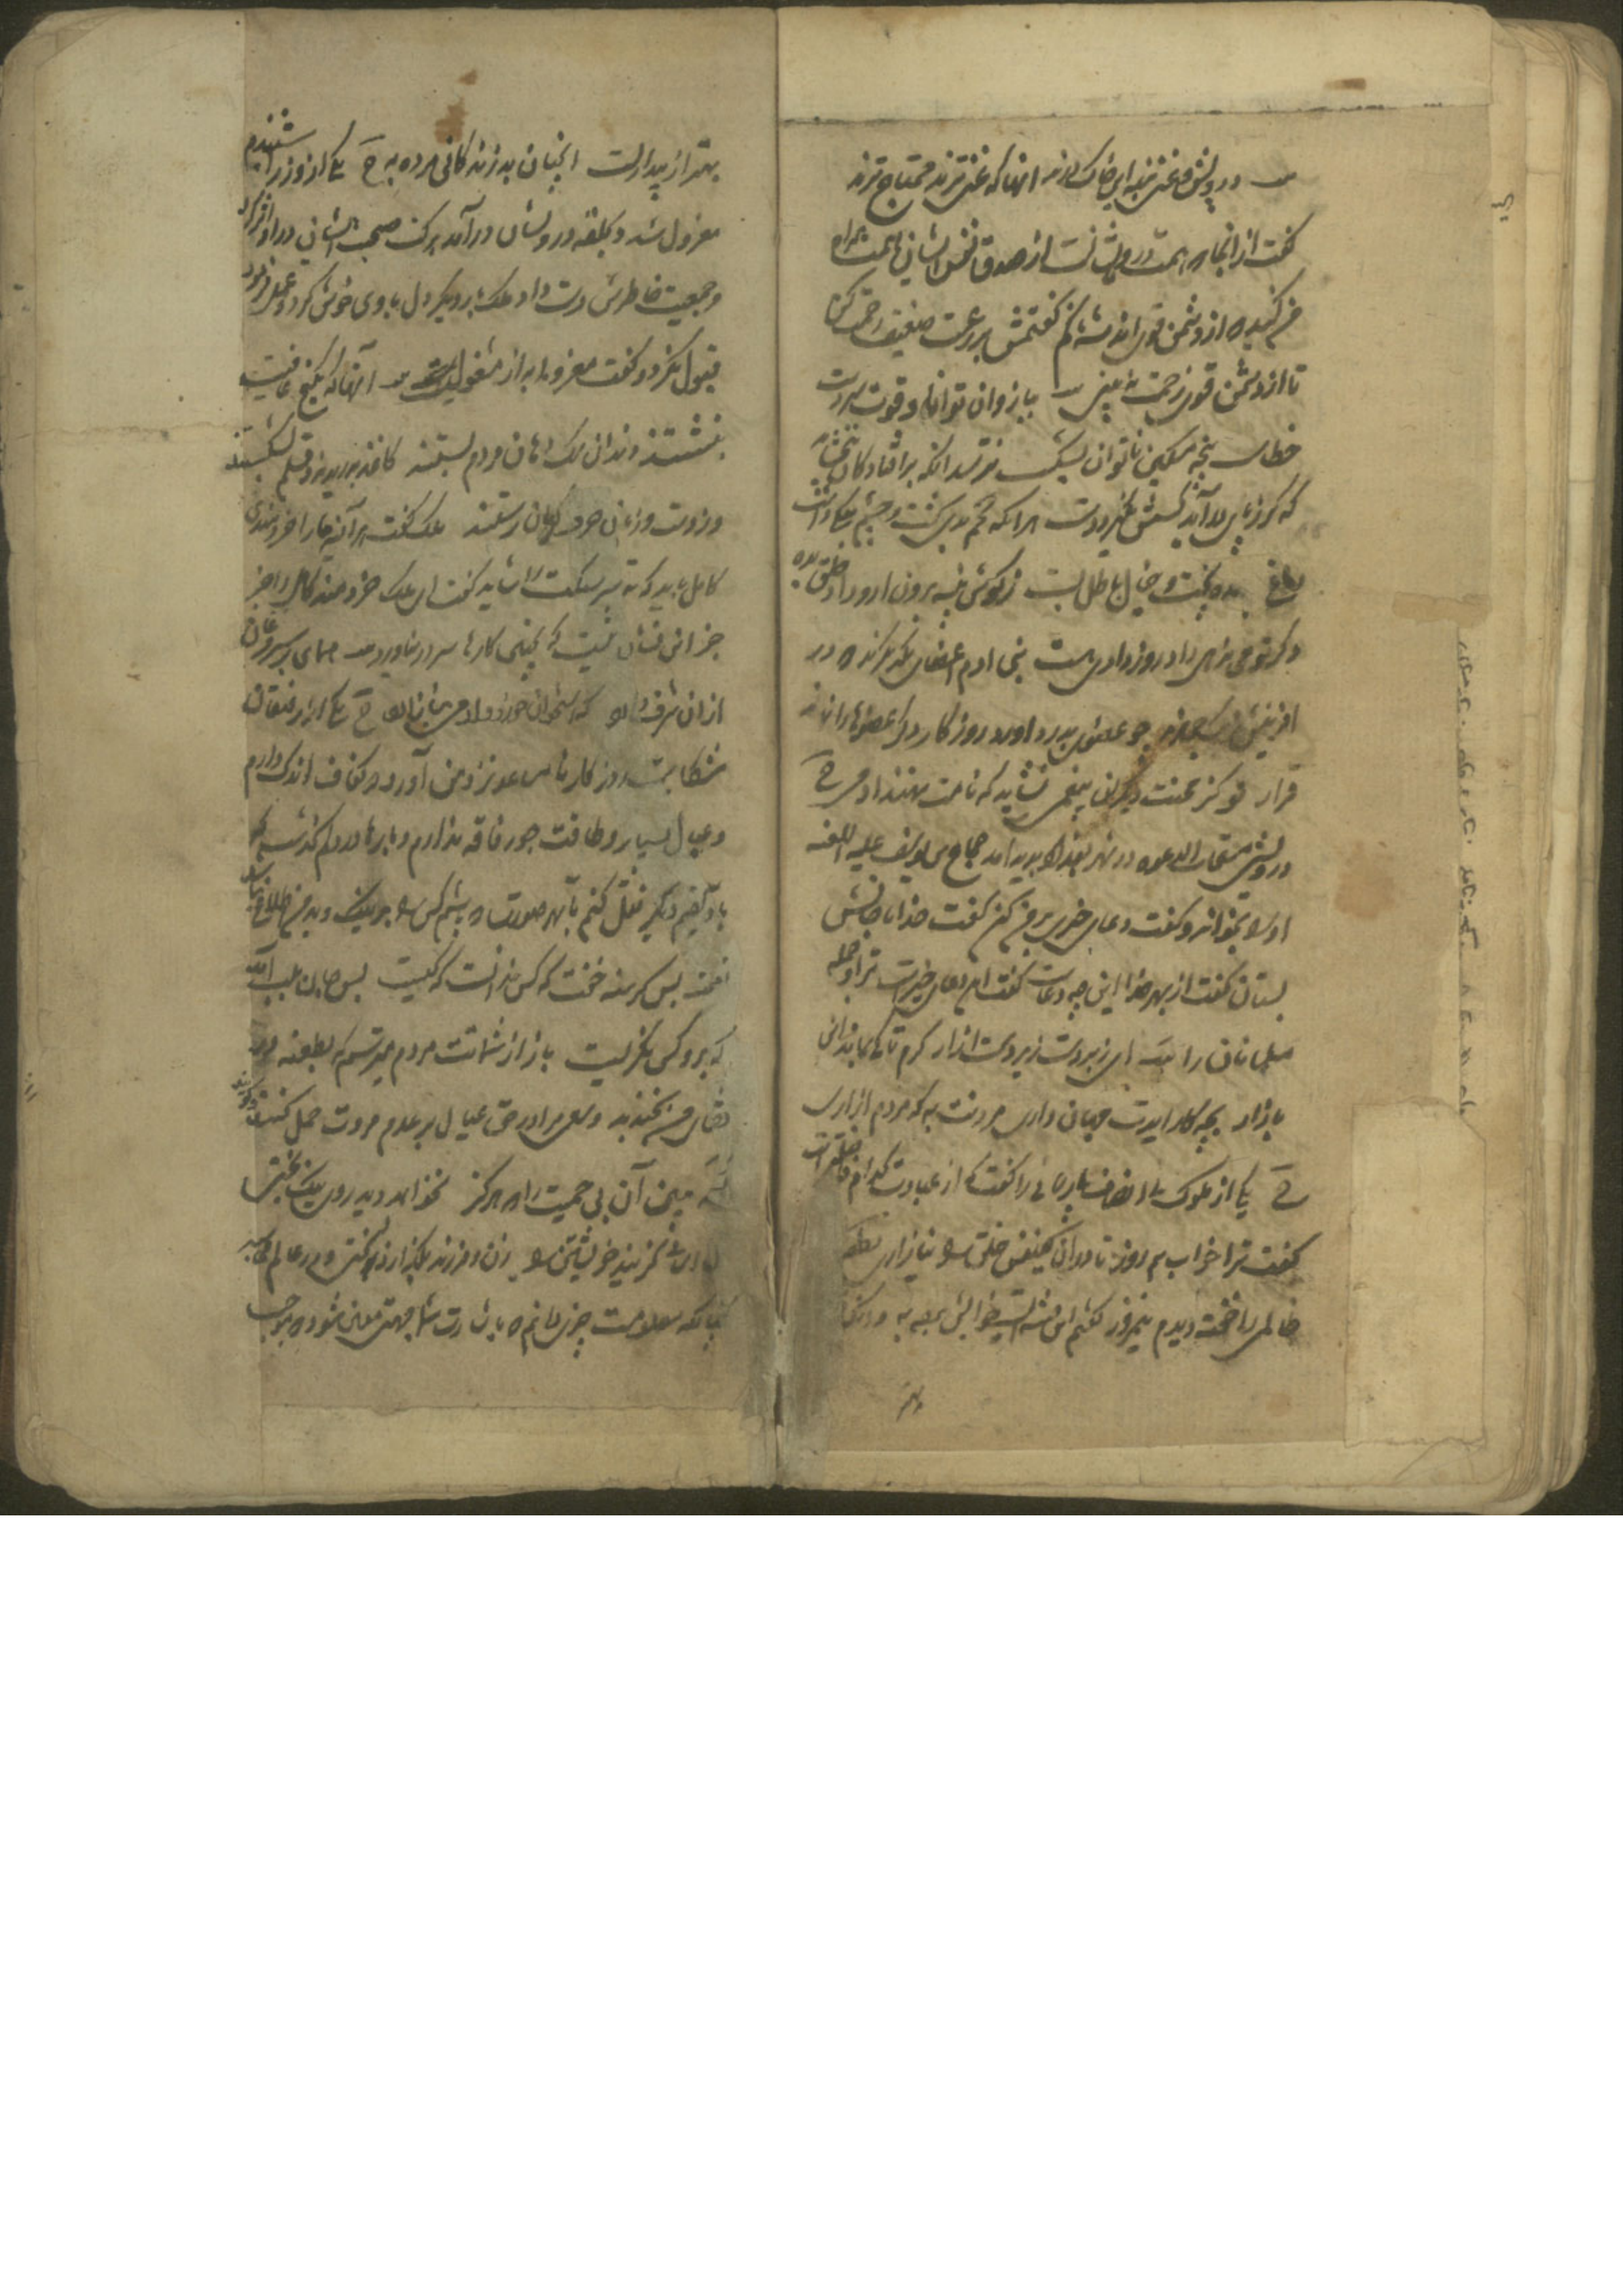 درویش و غنی بنده این خاک درند آنها که غنی ترند محتاج ترند
گفت از انجا که همت درویشانست از صدق نفس ایشان همت همراه
من کنید که از دشمن قوی اندیشه ناکم گفتمش بر رعیت ضعیف رحمت کن
تا از دشمن قوی زحمت نه بینی ببازوان توانا و قوت سر دست
خطاست پنجه مسکین ناتوان بشکست نترسد انکه بر افتادگان نبخشاید
که گر ز پای در آید کسش نگیرد دست هر انکه تخم بدی کشت و چشم نیکی داشت
دماغ بیهده پخت و خیال باطل بست ز گوش پنبه برون ار و داد خلق بده
و گر تو می ندهی داد روز دادی هست بنی ادم اعضای یکدیگرند که در
افرینش ز یک جوهرند چو عضوی بدرد اورد روزگار دگر عضوها را نماند
قرار تو کز محنت دیگران بیغمی نشاید که نامت نهند ادمی ح
درویشی مستجاب الدعوه در شهر بغداد پدید امد حجاج یوسف علیه اللعنه
او را بخواند و گفت دعای خیری بر من کن گفت خدایا جانش
بستان گفت از بهر خدا این چه دعاست گفت این دعای خیرست ترا و جمله
مسلمانان را ای زبردست زیردست ازار گرم تا کی بماند این
بازار بچه کار ایدت جهان داری مردنت به که مردم ازاری
ح یکی از ملوک بی انصاف پارسائی را گفت که از عبادت کدام فاضلتر است
گفت ترا خواب نیم روز تا در ان یکنفس خلق را نیازاری قطعه
ظالمی را خفته دیدم نیم روز گفتم این فتنه است خوابش برده به وانکه
بهتر از بیداریست انچنان بد زندگانی مرده به ح یکی از وزرا شنیدم
معزول شد و بحلقه درویشان درآمد برکت صحبت ایشان در او اثر کرد
و جمعیت خاطرش دست داد ملک بار دیگر دل با وی خوش کرد و عمل فرمود
قبول نکرد و گفت معزولی به از مشغولیست آنها که بکنج عافیت
بنشستند دندان سگ و دهان مردم بستند کاغذ بدریدند و قلم بشکستند
وز دست و زبان حرف گیران رستند ملک گفت هر آینه ما را خردمندی
کامل باید که تدبیر مملکت را شاید گفت ای ملک خردمند کامل را جز
جز این نشان نیست که بچنین کارها سر در نیاورد همای بر سر مرغان
از ان شرف دارد که استخوان خورد و ادمی نیازارد ح یکی از رفیقان
شکایت روزگار نامساعد نزد من آورد که کفاف اندک دارم
و عیال بسیار و طاقت جور فاقه ندارم و بارها در دلم گذشت که
باقلیم دیگر نقل کنم تا بهر صورت که باشم کس را بر نیک و بد من اطلاع نباشد
بس گرسنه خفت که کس ندانست که کیست بس جان بلب آمد
که برو کس نگریست باز از شماتت مردم میترسم که بطعنه در
قفای من بخندند و سعی مرا در حق عیال بر عدم مروت حمل کنند و گویند
مبین آن بی حمیت را که هرگز نخواهد دید روی نیک بختی
تن اسانی گزیند خویشتن را زن و فرزند بگذارد بسختی و در علم محاسبه
چنانکه معلومست چیزی دانم که باشارت شما جهتی معین شود که موجب